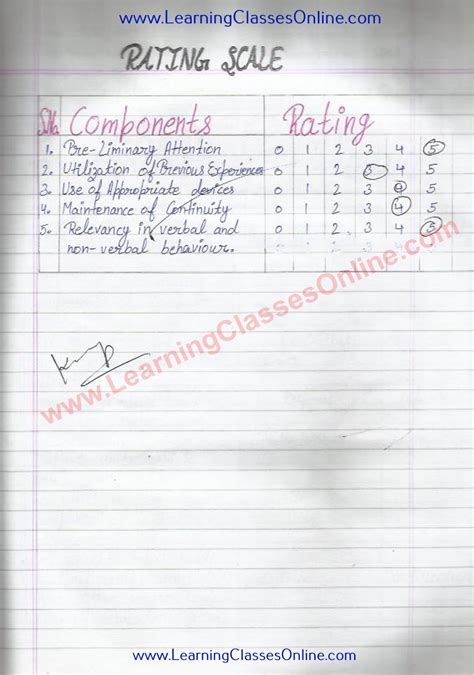 www.LearningClassesOnline.com
RATING SCALE
S.No. Components Rating
1. Pre-Liminary Attention 0 1 2 3 4 5
2. Utilization of Previous Experiences 0 1 2 3 4 5
3. Use of Appropriate devices 0 1 2 3 4 5
4. Maintenance of Continuity 0 1 2 3 4 5
5. Relevancy in verbal and 0 1 2 3 4 5
non-verbal behaviour.
www.LearningClassesOnline.com
www.LearningClassesOnline.com